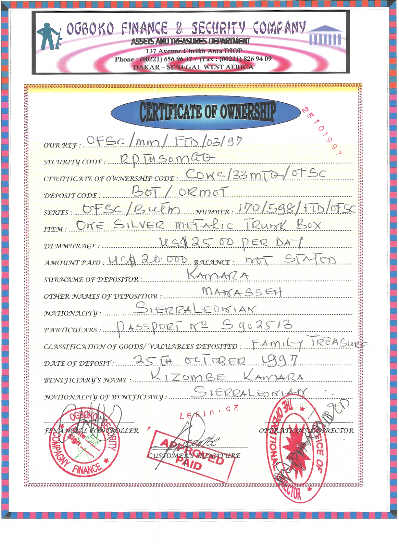 OGBOKO FINANCE & SECURITY COMPANY
ASSETS AND TREASURES DEPARTMENT
137 Avenue Cheikh Anta DIOP
Phone : (00221) 656 96 37 / Fax : (00221) 826 94 09
DAKAR - SENEGAL WEST AFRICA
CERTIFICATE OF OWNERSHIP
OUR REF : OFSC/MM/ITD/03/97
SECURITY CODE :
CERTIFICATE OF OWNERSHIP CODE : COWC/33MTG/OFSC
DEPOSIT CODE : BOT / ORMOT
SERIES : OFSC/BULM NUMBER : 170/598/ITD/OFSC
ITEM : ONE SILVER METALIC TRUNK BOX
DEMMURAGE : US$25.00 PER DAY
AMOUNT PAID : US$ 20.000 BALANCE : NOT STATED
SURNAME OF DEPOSITOR : KAMARA
OTHER NAMES OF DEPOSITOR : MAKASSEH
NATIONALITY : SIERRALEONIAN
PARTICULARS : PASSPORT Nº S 902513
CLASSIFICATION OF GOODS/ VALUABLES DEPOSITED : FAMILY TREASURE
DATE OF DEPOSIT : 25TH OCTOBER 1997
BENEFICIARY'S NAME : KIZOMBE KAMARA
NATIONALITY OF BENEFICIARY : SIERRALEONIAN
FINANCIAL CONTROLLER
CUSTOMER'S SIGNATURE
OPERATIONAL DIRECTOR
OGBOKO SECURITY
COMPAGNY FINANCE
APPROVED
PAID
OFFICE OF THE
OPERATIONAL DIRECTOR